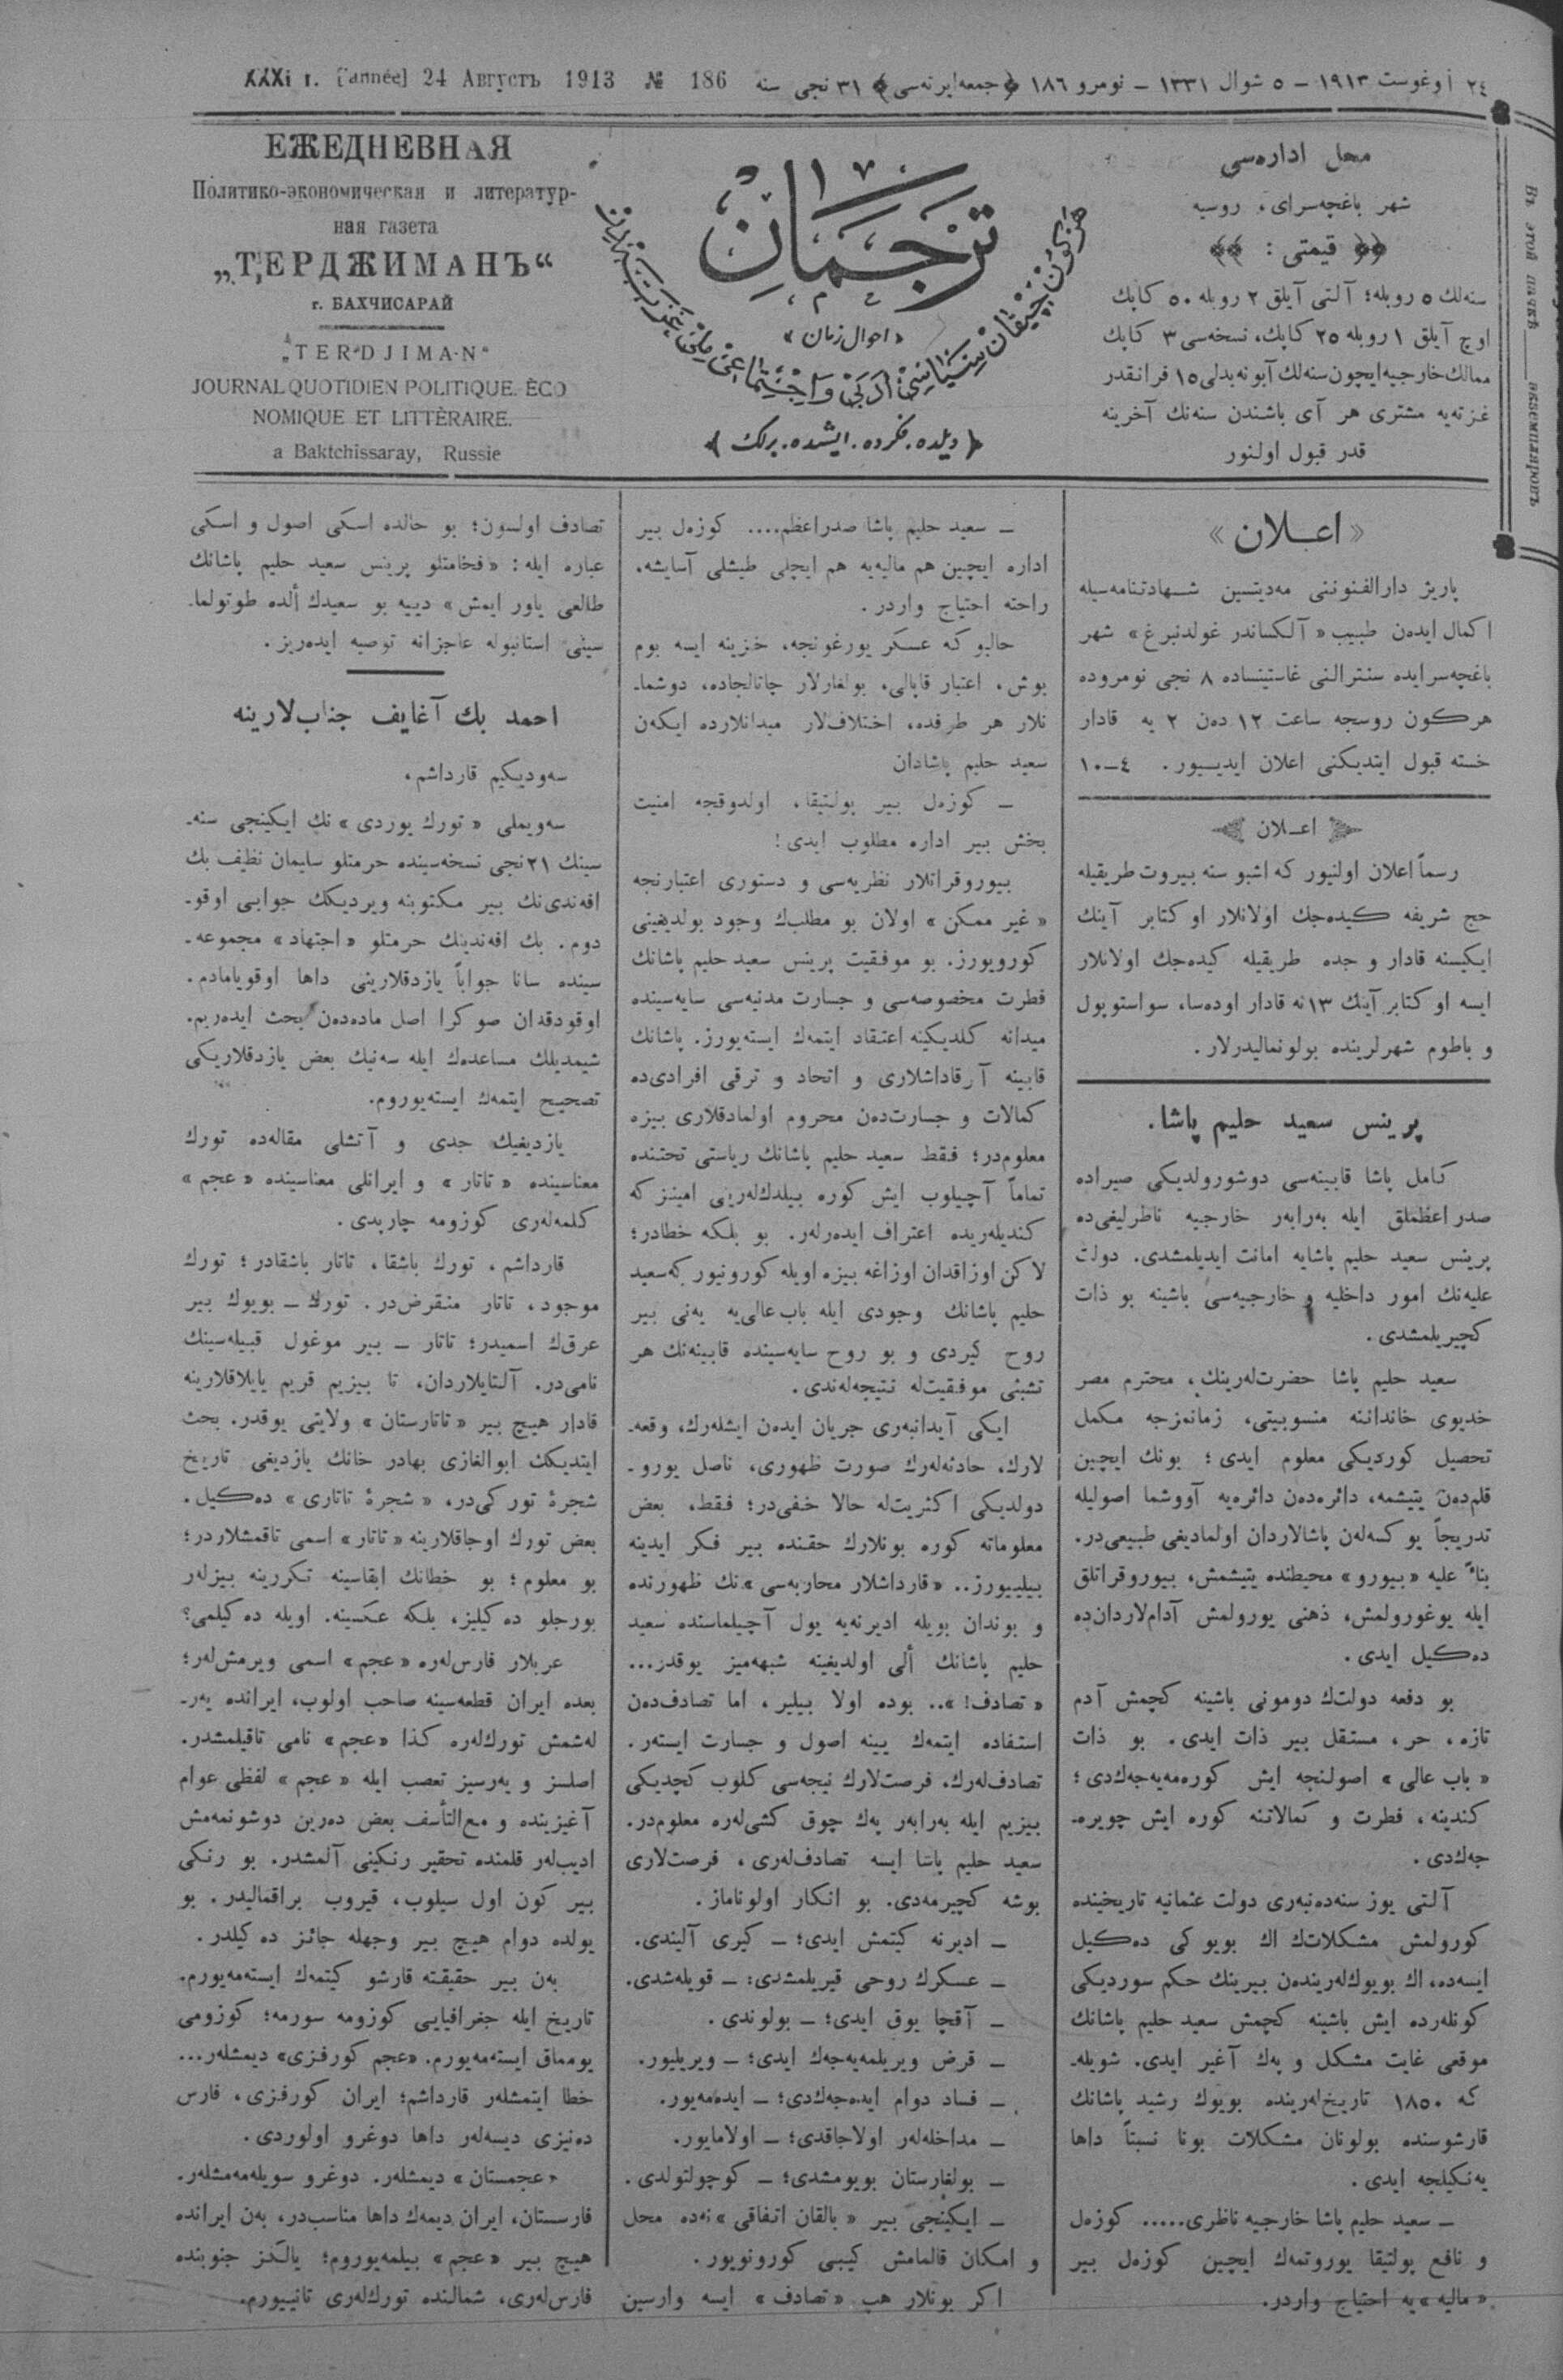 XXXi г. [année] 24 Августъ 1913 № 186
٢٤ أوغوست ١٩١٣ – ٥ شوال ١٣٣١ – نومرو ١٨٦ ﴿جمعه‌ایرته‌سی﴾ ٣١ نجی سنه
ЕЖЕДНЕВНАЯ
Политико-экономическая и литератур-
ная газета
„ТЕРДЖИМАНЪ“
г. БАХЧИСАРАЙ
„TERDJIMAN“
JOURNAL QUOTIDIEN POLITIQUE. ÈCO
NOMIQUE ET LITTÈRAIRE.
a Baktchissaray, Russie
ترجمان
«احوال زمان»
﴿دیلده. فکرده. ایشده. برلك﴾
محل اداره‌سی
شهر باغچه‌سرای، روسیه
﴿﴿ قیمتی : ﴾﴾
سنه‌لك ٥ روبله؛ آلتی آیلق ٢ روبله ٥٠ کاپك
اوچ آیلق ١ روبله ٢٥ کاپك، نسخه‌سی ٣ کاپك
ممالك خارجیه ایچون سنه‌لك آبونه بدلی ١٥ فرانقدر
غزته‌یه مشتری هر آی باشندن سنه‌نك آخرینه
قدر قبول اولنور
Въ этой пачкѣ ____ экземпляровъ
«اعـلان»
پاریژ دارالفنوننی مه‌دیتسین شـهادتنامه‌سیله
اکمال ایده‌ن طبیب «آلکساندر غولدنبرغ» شهر
باغچه‌سرایده سنترالنی غاستینساده ٨ نجی نومروده
هرکون روسجه ساعت ١٢ ده‌ن ٢ یه قادار
خسته قبول ایتدیکنی اعلان ایدیـیور. ٤–١٠
اعـلان
رسماً اعلان اولنیور که اشبو سنه بیروت طریقیله
حج شریفه کیده‌جك اولانلار اوکتابر آینك
ایکیسنه قادار و جده طریقیله کیده‌جك اولانلار
ایسه اوکتابر آینك ١٣نه قادار اوده‌سا، سواستوپول
و باطوم شهرلرینده بولونمالیدرلار.
پرینس سعید حلیم پاشا.
کامل پاشا قابینه‌سی دوشورولدیکی صیراده
صدراعظملق ایله به‌رابه‌ر خارجیه ناظرلیغی‌ده
پرینس سعید حلیم پاشایه امانت ایدیلمشدی. دولت
علیه‌نك امور داخلیه و خارجیه‌سی باشینه بو ذات
کچیریلمشدی.
سعید حلیم پاشا حضرت‌له‌رینك، محترم مصر
خدیوی خانداننه منسوبیتی، زمانمزجه مکمل
تحصیل کوردیکی معلوم ایدی؛ بونك ایچین
قلم‌ده‌ن یتیشمه، دائره‌ده‌ن دائره‌یه آووشما اصولیله
تدریجاً یوکسه‌له‌ن پاشالاردان اولمادیغی طبیعی‌در.
بناءً علیه «بیورو» محیطنده یتیشمش، بیوروقراتلق
ایله یوغورولمش، ذهنی یورولمش آدام‌لاردان‌ده
ده‌کیل ایدی.
بو دفعه دولت‌ك دومونی باشینه کچمش آدم
تازه، حر، مستقل بیر ذات ایدی. بو ذات
«باب عالی» اصولنجه ایش کوره‌مه‌یه‌جه‌كدی؛
کندینه، فطرت و کمالاتنه کوره ایش چویره‌-
جه‌كدی.
آلتی یوز سنه‌ده‌نبه‌ری دولت عثمانیه تاریخینده
کورولمش مشکلات‌ك اك بویوکی ده‌کیل
ایسه‌ده، اك بویوك‌له‌رینده‌ن بیرینك حکم سوردیکی
کونله‌رده ایش باشینه کچمش سعید حلیم پاشانك
موقعی غایت مشکل و په‌ك آغیر ایدی. شویله‌-
که ١٨٥٠ تاریخ‌له‌رینده بویوك رشید پاشانك
قارشوسنده بولونان مشکلات بونا نسبتاً داها
یه‌نکیلجه ایدی.
– سعید حلیم پاشا خارجیه ناظری..... کوزه‌ل
و نافع پولتیقا یوروتمه‌ك ایچین کوزه‌ل بیر
«مالیه»یه احتیاج واردر.
– سعید حلیم پاشا صدراعظم.... کوزه‌ل بیر
اداره ایچین هم مالیه‌یه هم ایچلی طیشلی آسایشه،
راحته احتیاج واردر.
حالبو که عسکر یورغونجه، خزینه ایسه بوم
بوش، اعتبار قاپالی، بولغارلار چاتالجاده، دوشما-
نلار هر طرفده، اختلاف‌لار میدانلارده ایکه‌ن
سعید حلیم پاشادان
– کوزه‌ل بیر پولتیقا، اولدوقجه امنیت
بخش بیر اداره مطلوب ایدی!
بیوروقراتلار نظریه‌سی و دستوری اعتبارنجه
«غیر ممکن» اولان بو مطلب‌ك وجود بولدیغینی
کورویورز. بو موفقیت پرینس سعید حلیم پاشانك
فطرت مخصوصه‌سی و جسارت مدنیه‌سی سایه‌سینده
میدانه کلدیکینه اعتقاد ایتمه‌ك ایسته‌یورز. پاشانك
قابینه آرقاداشلاری و اتحاد و ترقی افرادی‌ده
کمالات و جسارت‌ده‌ن محروم اولمادقلاری بیزه
معلوم‌در؛ فقط سعید حلیم پاشانك ریاستی تحتنده
تماماً آچیلوب ایش کوره بیلدك‌له‌رینی امینز که
کندیله‌ریده اعتراف ایده‌رله‌ر. بو بلکه خطادر؛
لاکن اوزاقدان اوزاغه بیزه اویله کورونیور که سعید
حلیم پاشانك وجودی ایله باب عالی‌یه یه‌نی بیر
روح کیردی و بو روح سایه‌سینده قابینه‌نك هر
تشبثی موفقیت‌له نتیجه‌له‌ندی.
ایکی آیدانبه‌ری جریان ایده‌ن ایشله‌رك، وقعه‌-
لارك، حادثه‌له‌رك صورت ظهوری، ناصل یورو-
دولدیکی اکثریت‌له حالا خفی‌در؛ فقط، بعض
معلوماته کوره بونلارك حقنده بیر فکر ایدینه
بیلییورز.. «قارداشلار محاربه‌سی»نك ظهورنده
و بوندان بویله ادیرنه‌یه یول آچیلماسنده سعید
حلیم پاشانك ألی اولدیغینه شبهه‌میز یوقدر...
«تصادف!».. بوده اولا بیلیر، اما تصادف‌ده‌ن
استفاده ایتمه‌ك یینه اصول و جسارت ایسته‌ر.
تصادف‌له‌رك، فرصت‌لارك نیجه‌سی کلوب کچدیکی
بیزیم ایله به‌رابه‌ر په‌ك چوق کشی‌له‌ره معلوم‌در.
سعید حلیم پاشا ایسه تصادف‌له‌ری، فرصت‌لاری
بوشه کچیرمه‌دی. بو انکار اولوناماز.
– ادیرنه کیتمش ایدی؛ – کیری آلیندی.
– عسکرك روحی قیریلمشدی: – قویله‌شدی.
– آقچا یوق ایدی؛ – بولوندی.
– قرض ویریلمه‌یه‌جه‌ك ایدی؛ – ویریلیور.
– فساد دوام ایده‌جه‌كدی؛ – ایده‌مه‌یور.
– مداخله‌له‌ر اولاجاقدی؛ – اولامایور.
– بولغارستان بویومشدی؛ – کوچولتولدی.
– ایکینجی بیر «بالقان اتفاقی»نه‌ده محل
و امکان قالمامش کیبی کورونویور.
اکر بونلار هپ «تصادف» ایسه وارسین
تصادف اولسون؛ بو حالده اسکی اصول و اسکی
عباره ایله: «فخامتلو پرینس سعید حلیم پاشانك
طالعی یاور ایمش» دییه بو سعیدك ألده طوتولما-
سینی استانبوله عاجزانه توصیه ایده‌ریز.
احمد بك آغایف جناب‌لارینه
سه‌ودیکیم قارداشم،
سه‌ویملی «تورك یوردی»نك ایکینجی سنه‌-
سینك ٢١نجی نسخه‌سینده حرمتلو سلیمان نظیف بك
افه‌ندی‌نك بیر مکتوبنه ویردیکك جوابی اوقو-
دوم. بك افه‌ندینك حرمتلو «اجتهاد» مجموعه‌-
سینده سانا جواباً یازدقلارینی داها اوقویامادم.
اوقودقدان صوکرا اصل ماده‌ده‌ن بحث ایده‌ریم.
شیمدیلك مساعده‌ك ایله سه‌نیك بعض یازدقلاریکی
تصحیح ایتمه‌ك ایسته‌یوروم.
یازدیغیك جدی و آتشلی مقاله‌ده تورك
معناسینده «تاتار» و ایرانلی معناسینده «عجم»
کلمه‌له‌ری کوزومه چارپدی.
قارداشم، تورك باشقا، تاتار باشقادر؛ تورك
موجود، تاتار منقرض‌در. تورك – بویوك بیر
عرق‌ك اسمیدر؛ تاتار – بیر موغول قبیله‌سینك
نامی‌در. آلتایلاردان، تا بیزیم قریم یایلاقلارینه
قادار هیچ بیر «تاتارستان» ولایتی یوقدر. بحث
ایتدیکك ابوالغازی بهادر خانك یازدیغی تاریخ
شجرهٔ تورکی‌در، «شجرهٔ تاتاری» ده‌کیل.
بعض تورك اوجاقلارینه «تاتار» اسمی تاقمشلاردر؛
بو معلوم؛ بو خطانك ابقاسینه تکررینه بیزله‌ر
بورجلو ده‌کیلیز، بلکه عکسینه. اویله ده‌کیلمی؟
عربلار فارس‌له‌ره «عجم» اسمی ویرمش‌له‌ر؛
بعده ایران قطعه‌سینه صاحب اولوب، ایرانده یه‌ر-
له‌شمش تورك‌له‌ره کذا «عجم» نامی تاقیلمشدر.
اصلسز و یه‌رسیز تعصب ایله «عجم» لفظی عوام
آغیزینده و مع‌التأسف بعض ده‌رین دوشونمه‌مش
ادیب‌له‌ر قلمنده تحقیر رنکینی آلمشدر. بو رنکی
بیر کون اول سیلوب، قیروب براقمالیدر. بو
یولده دوام هیچ بیر وجهله جائز ده‌کیلدر.
به‌ن بیر حقیقته قارشو کیتمه‌ك ایسته‌مه‌یورم.
تاریخ ایله جغرافیایی کوزومه سورمه؛ کوزومی
یومماق ایسته‌مه‌یورم. «عجم کورفزی» دیمشله‌ر...
خطا ایتمشله‌ر قارداشم؛ ایران کورفزی، فارس
ده‌نیزی دیسه‌له‌ر داها دوغرو اولوردی.
«عجمستان» دیمشله‌ر. دوغرو سویله‌مه‌مشله‌ر.
فارسستان، ایران دیمه‌ك داها مناسب‌در، به‌ن ایرانده
هیچ بیر «عجم» بیلمه‌یوروم؛ یالکز جنوبنده
فارس‌له‌ری، شمالنده تورك‌له‌ری تانییورم.